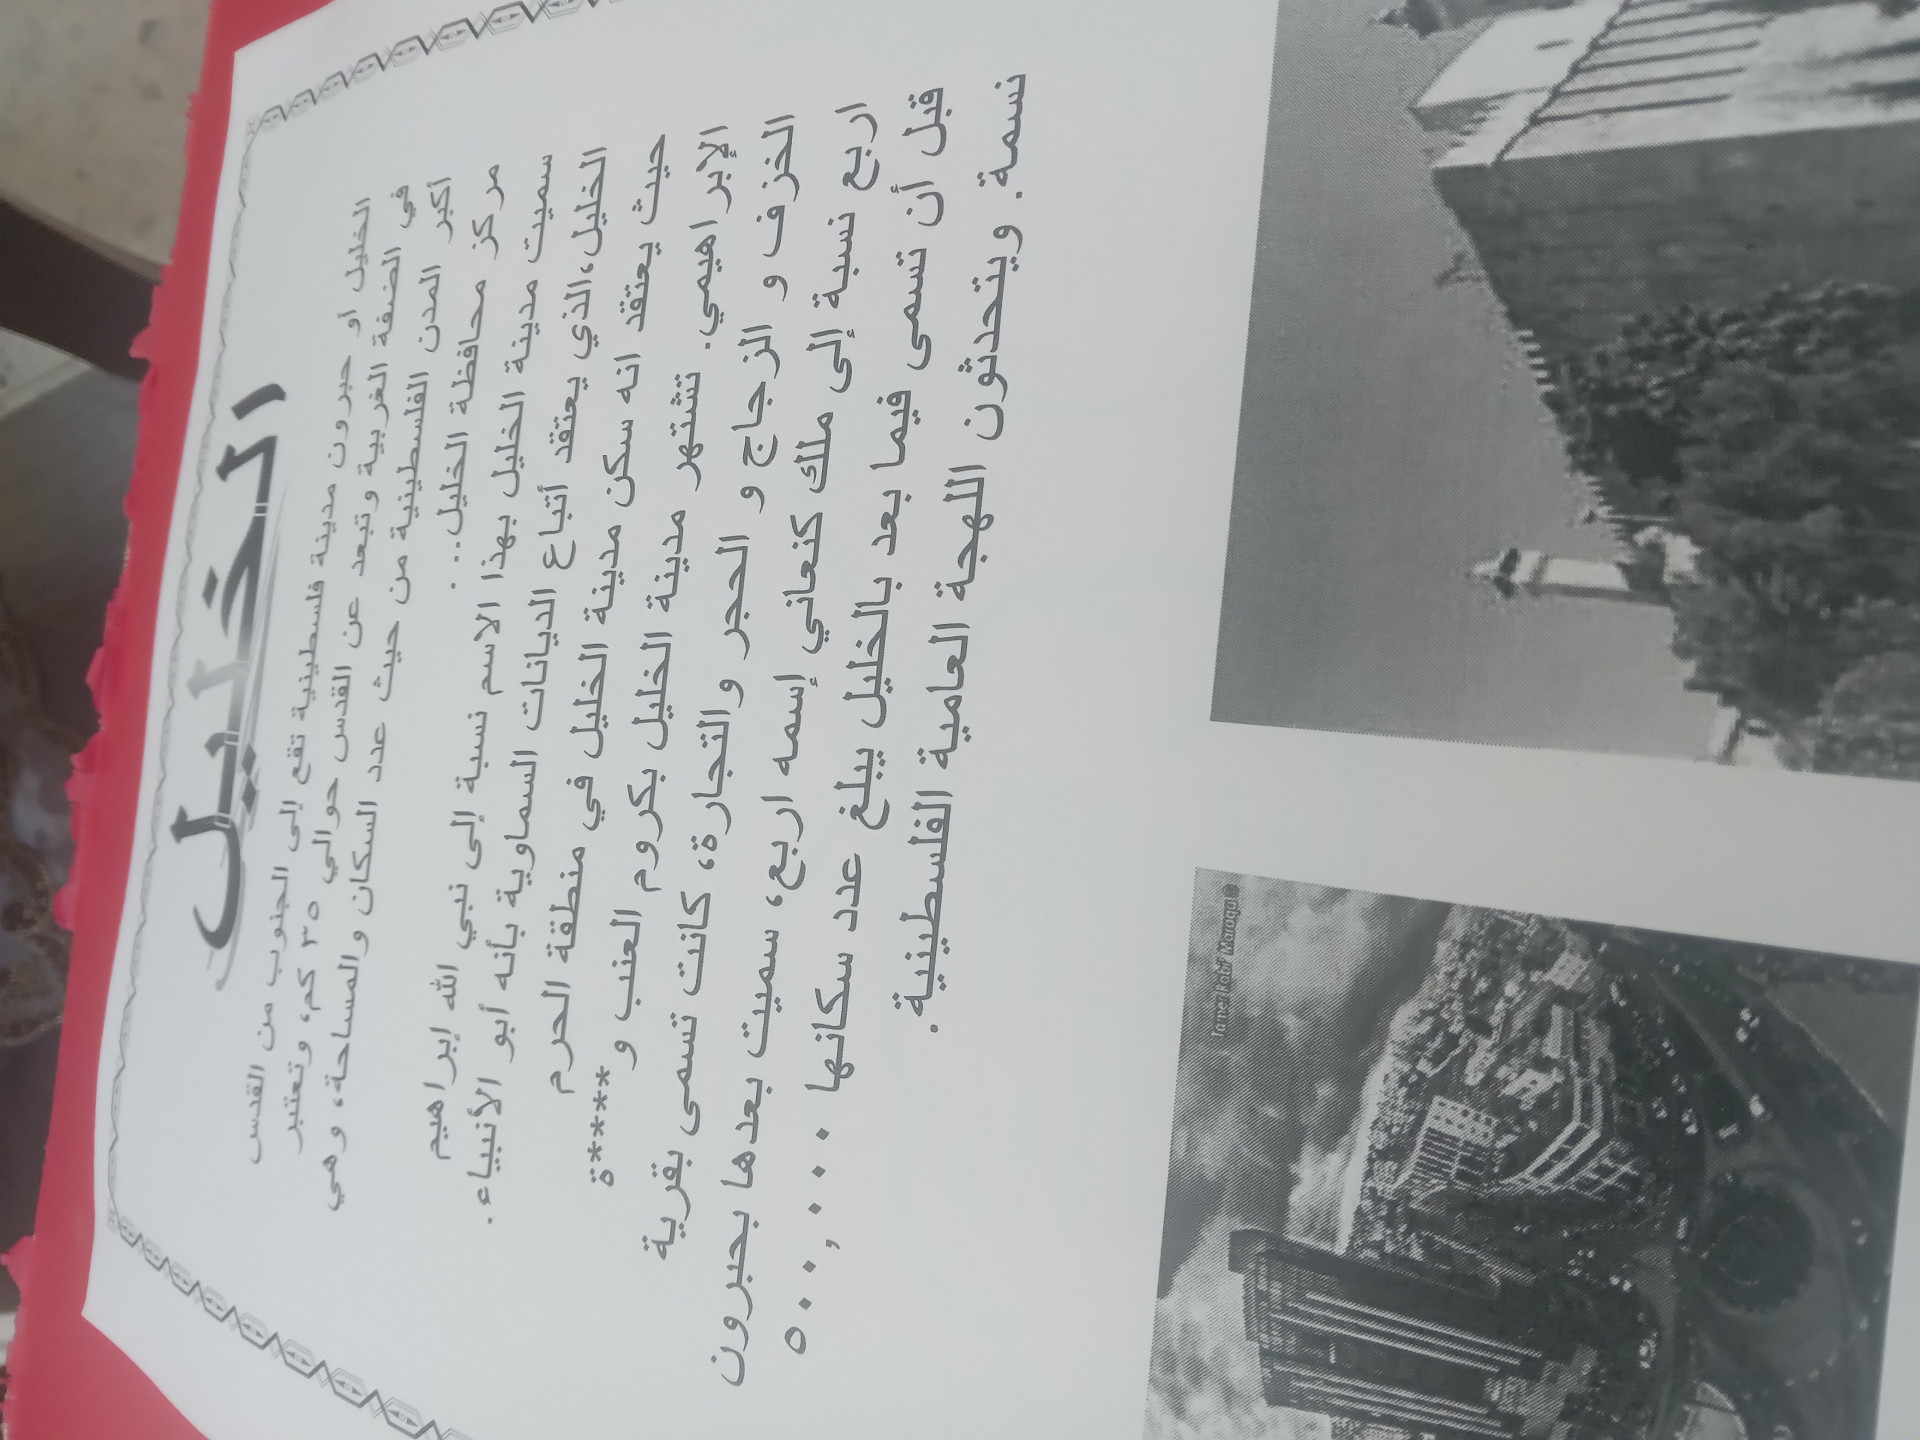 الخليل
الخليل أو حبرون مدينة فلسطينية تقع إلى الجنوب من القدس
في الضفة الغربية وتبعد عن القدس حوالي ٣٥ كم، وتعتبر
أكبر المدن الفلسطينية من حيث عدد السكان والمساحة، وهي
مركز محافظة الخليل..
سميت مدينة الخليل بهذا الاسم نسبة إلى نبي الله إبراهيم
الخليل،الذي يعتقد أتباع الديانات السماوية بأنه أبو الأنبياء.
حيث يعتقد انه سكن مدينة الخليل في منطقة الحرم
الإبراهيمي. تشتهر مدينة الخليل بكروم العنب و *****ة
الخزف و الزجاج و الحجر والتجارة، كانت تسمى بقرية
اربع نسبة إلى ملك كنعاني إسمه اربع، سميت بعدها بحبرون
قبل أن تسمى فيما بعد بالخليل يبلغ عدد سكانها ٥٠٠,٠٠٠
نسمة. ويتحدثون اللهجة العامية الفلسطينية.
Tamer Rabi' Maraqa©